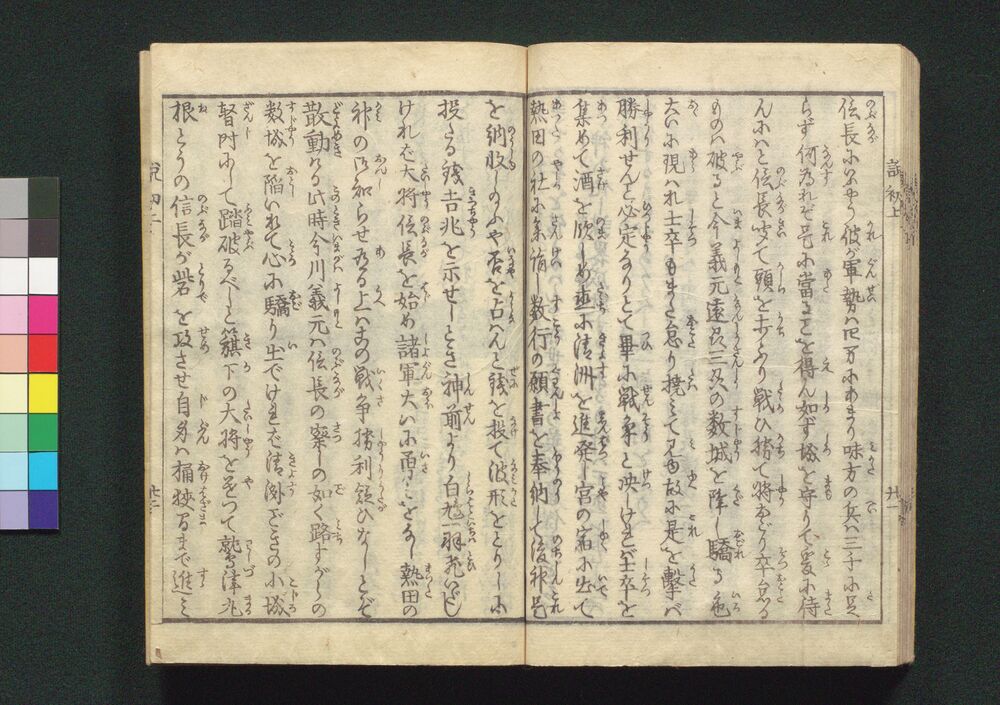 伝長にいふやう彼が軍勢は四万にあまり味方の兵は三千に足
らず何為れぞ是に當ることを得ん如ず城を守りて爰に待
んにはと伝長笑て頭をふり戦ひ勝て将おごり卒怠る
ものは破ると今義元遠参三及の数城を降し驕る色
大に現はれ士卒もまた怠り撓みて見ゆ故に是を撃バ
勝利せんと必定なりとて畢に戦争と决けれバ士卒を
集めて酒を飲しめ直に清洲を進発し宮の宿に出て
熱田の社に参詣し数行の願書を奉納して後神是
を納收したまふや否を占はんと銭を投て波形をとりしに
投たる銭吉兆を示せしとき神前より白鳥一羽飛いだし
けれバ大将信長を始め諸軍大いに勇みをなし熱田の
神の乃知らせ玉る上はこの戦争勝利疑ひなしとぞ
散動ける此時今川義元は信長の察しの如く路すがらの
数城を陥いれて心に驕り出でけれバ清洲ごときの小城
督付にして踏破るべしと籏下の大将をもつて鷲津丸
根とりの信長が砦を攻させ自身は桶狭間まで進ミ